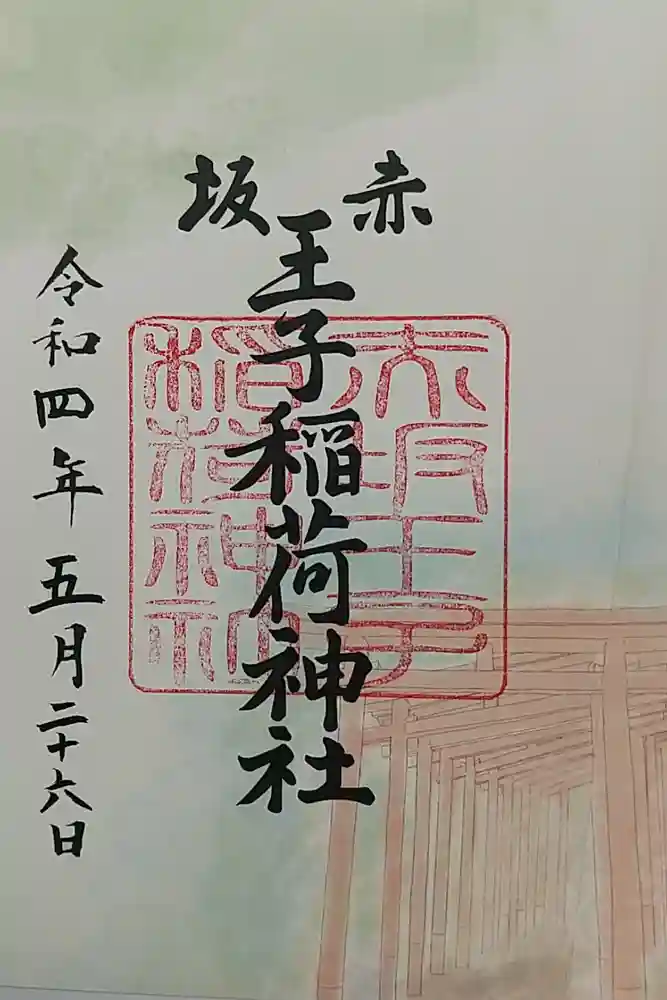 赤坂
王子稲荷神社
令和四年五月二十六日
赤坂王子
稲荷神社